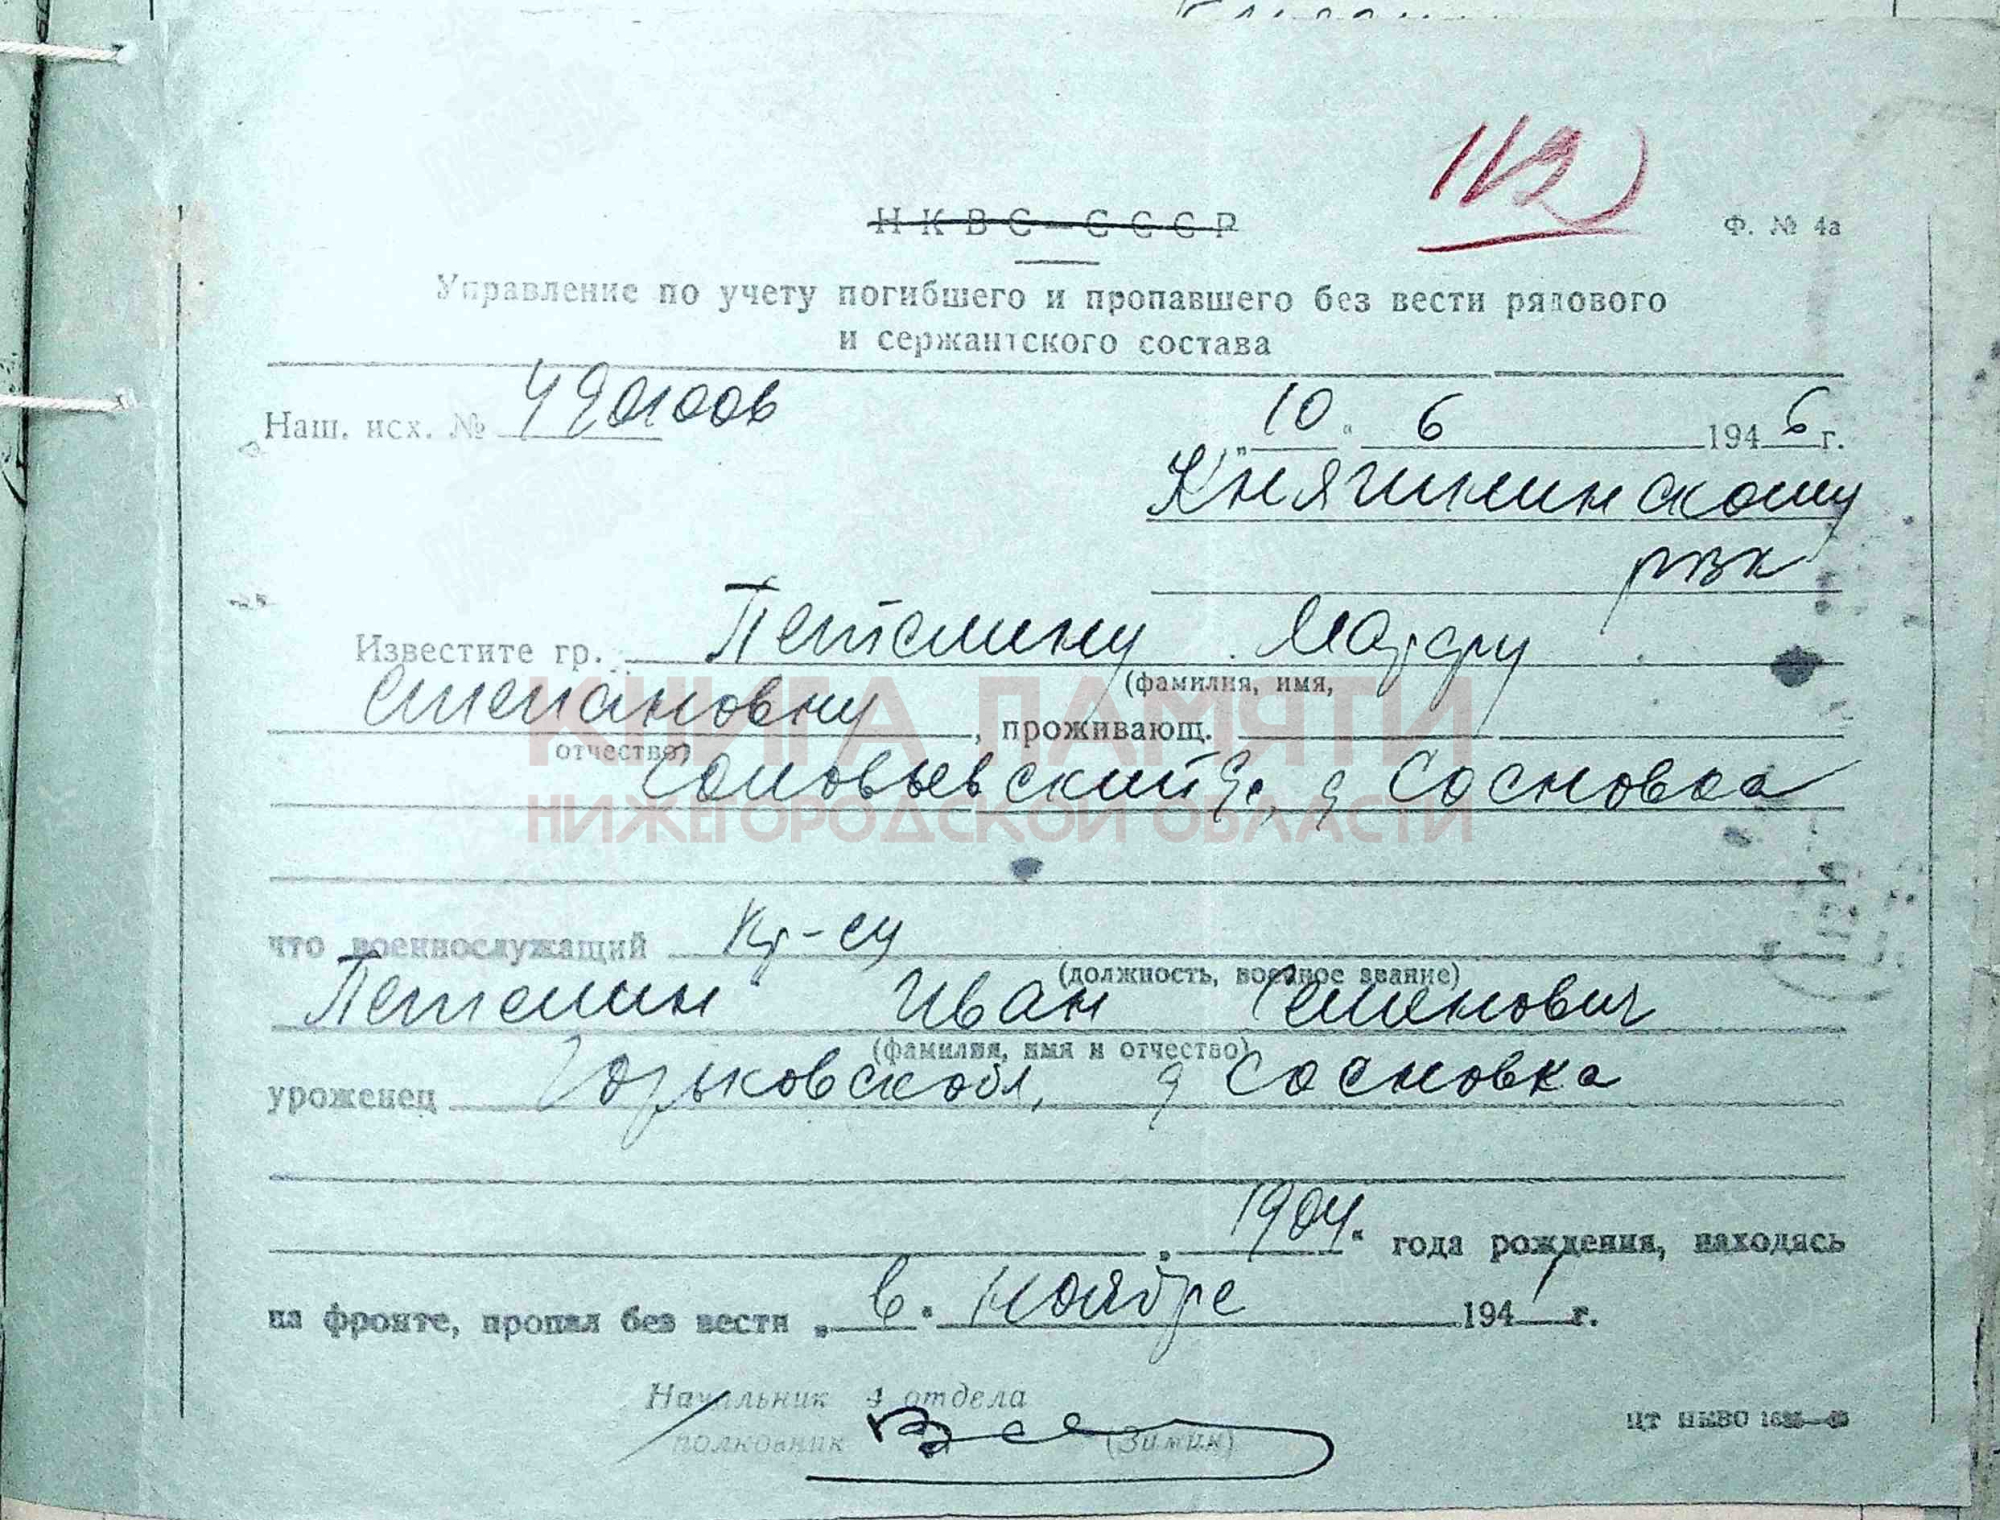 112
НКВС—СССР
Ф. № 4а
Управление по учету погибшего и пропавшего без вести рядового
и сержантского состава
Наш. исх. №
„10“ 6 1946 г.
Княгининскому
рвк
Известите гр. Петелину Марфу
(фамилия, имя,
Степановну, проживающ.
отчество)
Соловьевский с, д Сосновка
что военнослужащий кр-ец
(должность, военное звание)
Петелин Иван Семенович
(фамилия, имя и отчество)
уроженец Горьковск обл, д Сосновка
„1904“ года рождения, находясь
на фронте, пропал без вести „в“ ноябре 1941 г.
Начальник 4 отдела
полковник (Зимин)
КНИГА ПАМЯТИ
НИЖЕГОРОДСКОЙ ОБЛАСТИ